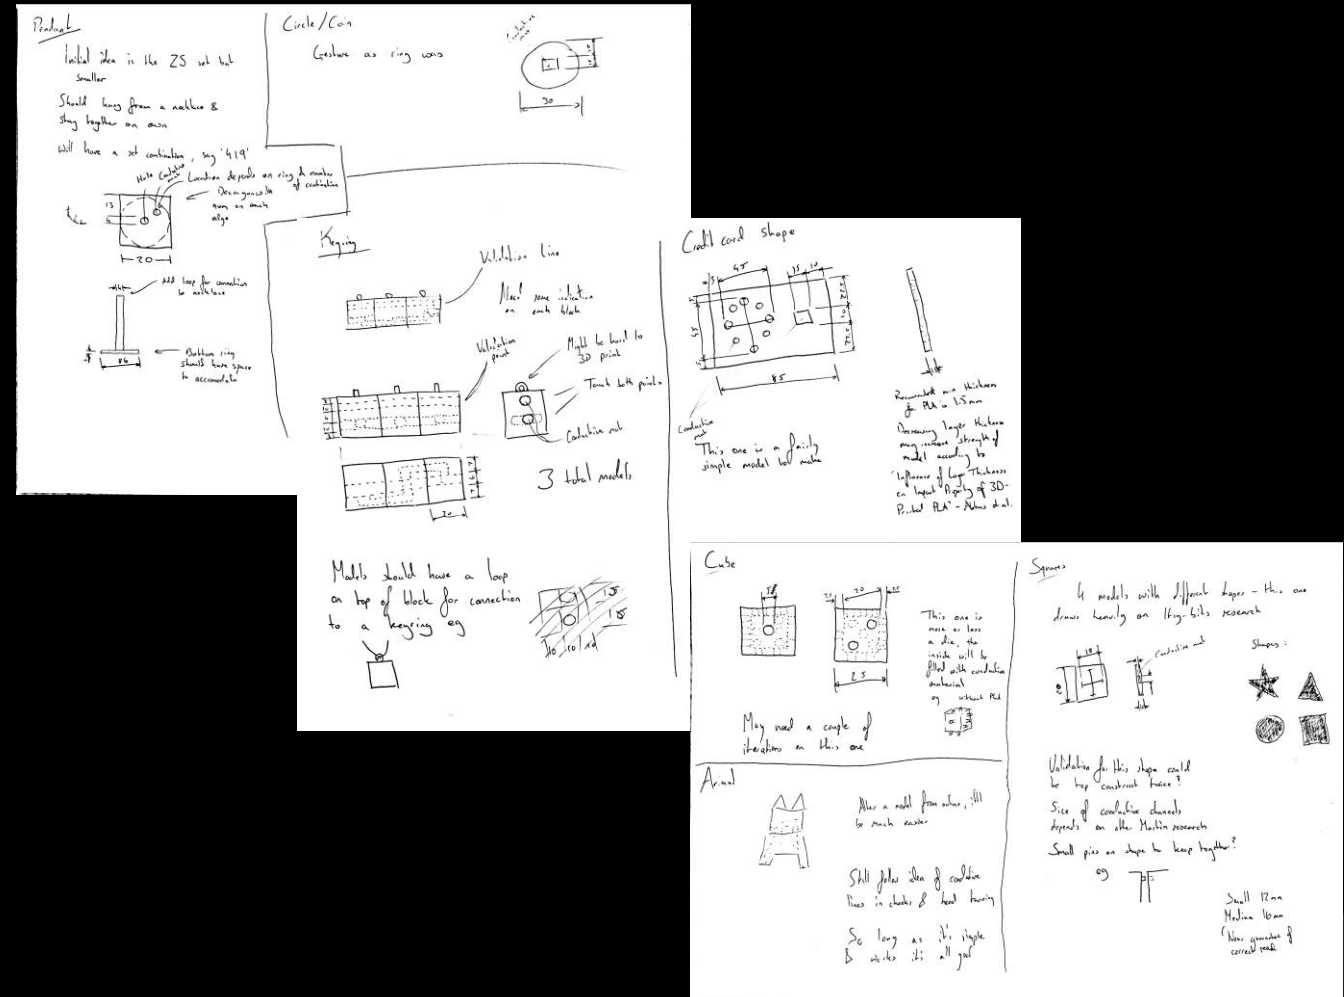 Pendant
Initial idea is the ZS set but
smaller
Should hang from a necklace &
stay together on own
Will have a set combination, say '419'
Hole
Location depends on ring & number
of combination
num on each
edge
13
20
Add loop for connection
to necklace
Bottom ring
should have space
to accomodate
Circle/Coin
Gesture as ring was
Conductive
mat
30
Keyring
Validation line
Need some indication
on each block
Validation
point
Might be hard to
3D print
Touch both points
Conductive mat
3 total models
20
Models should have a loop
on top of block for connection
to a keyring eg
Credit card shape
45
15
10
45
85
Conductive
mat
This one is a fairly
simple model to make
Recommended min thickness
for PLA is 1.5mm
Decreasing layer thickness
may increase strength of
model according to
"Influence of Layer Thickness
on Impact Property of 3D-
Printed PLA"
Cube
20
25
This one is
more or less
a die, the
inside will be
filled with conductive
material
eg without PLA
May need a couple of
iterations on this one
Animal
Alter a model from online, itll
be much easier
Still follow idea of conductive
lines in cheeks & head turning
So long as it's simple
& works it's all good
Squares
4 models with different shapes - this one
draws heavily on Itsy-bits research
Conductive mat
Shapes:
Validation for this shape could
be top construct twice?
Size of conductive channels
depends on other Martin research
Small pins on shape to keep together?
eg
Small 12mm
Medium 16mm
correct read